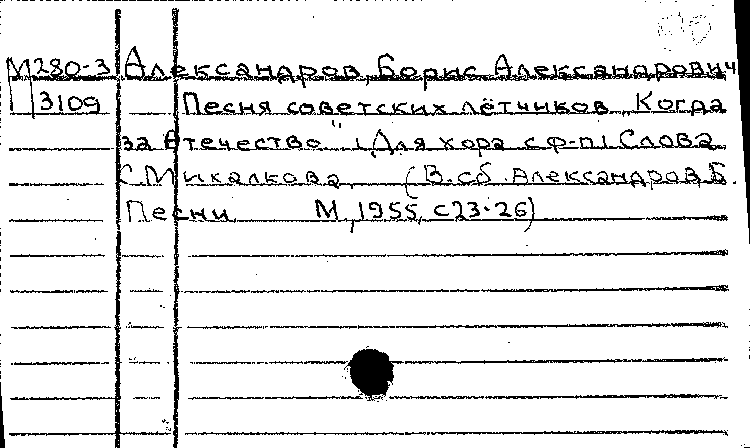 М280-3 Александров, Борис Александрович
3109 Песня советских лётчиков „Когда
за Отечество" [Для хора с ф-п] Слова
С Михалкова. (В сб. Александров Б.
Песни М, 1955, с 23-26)